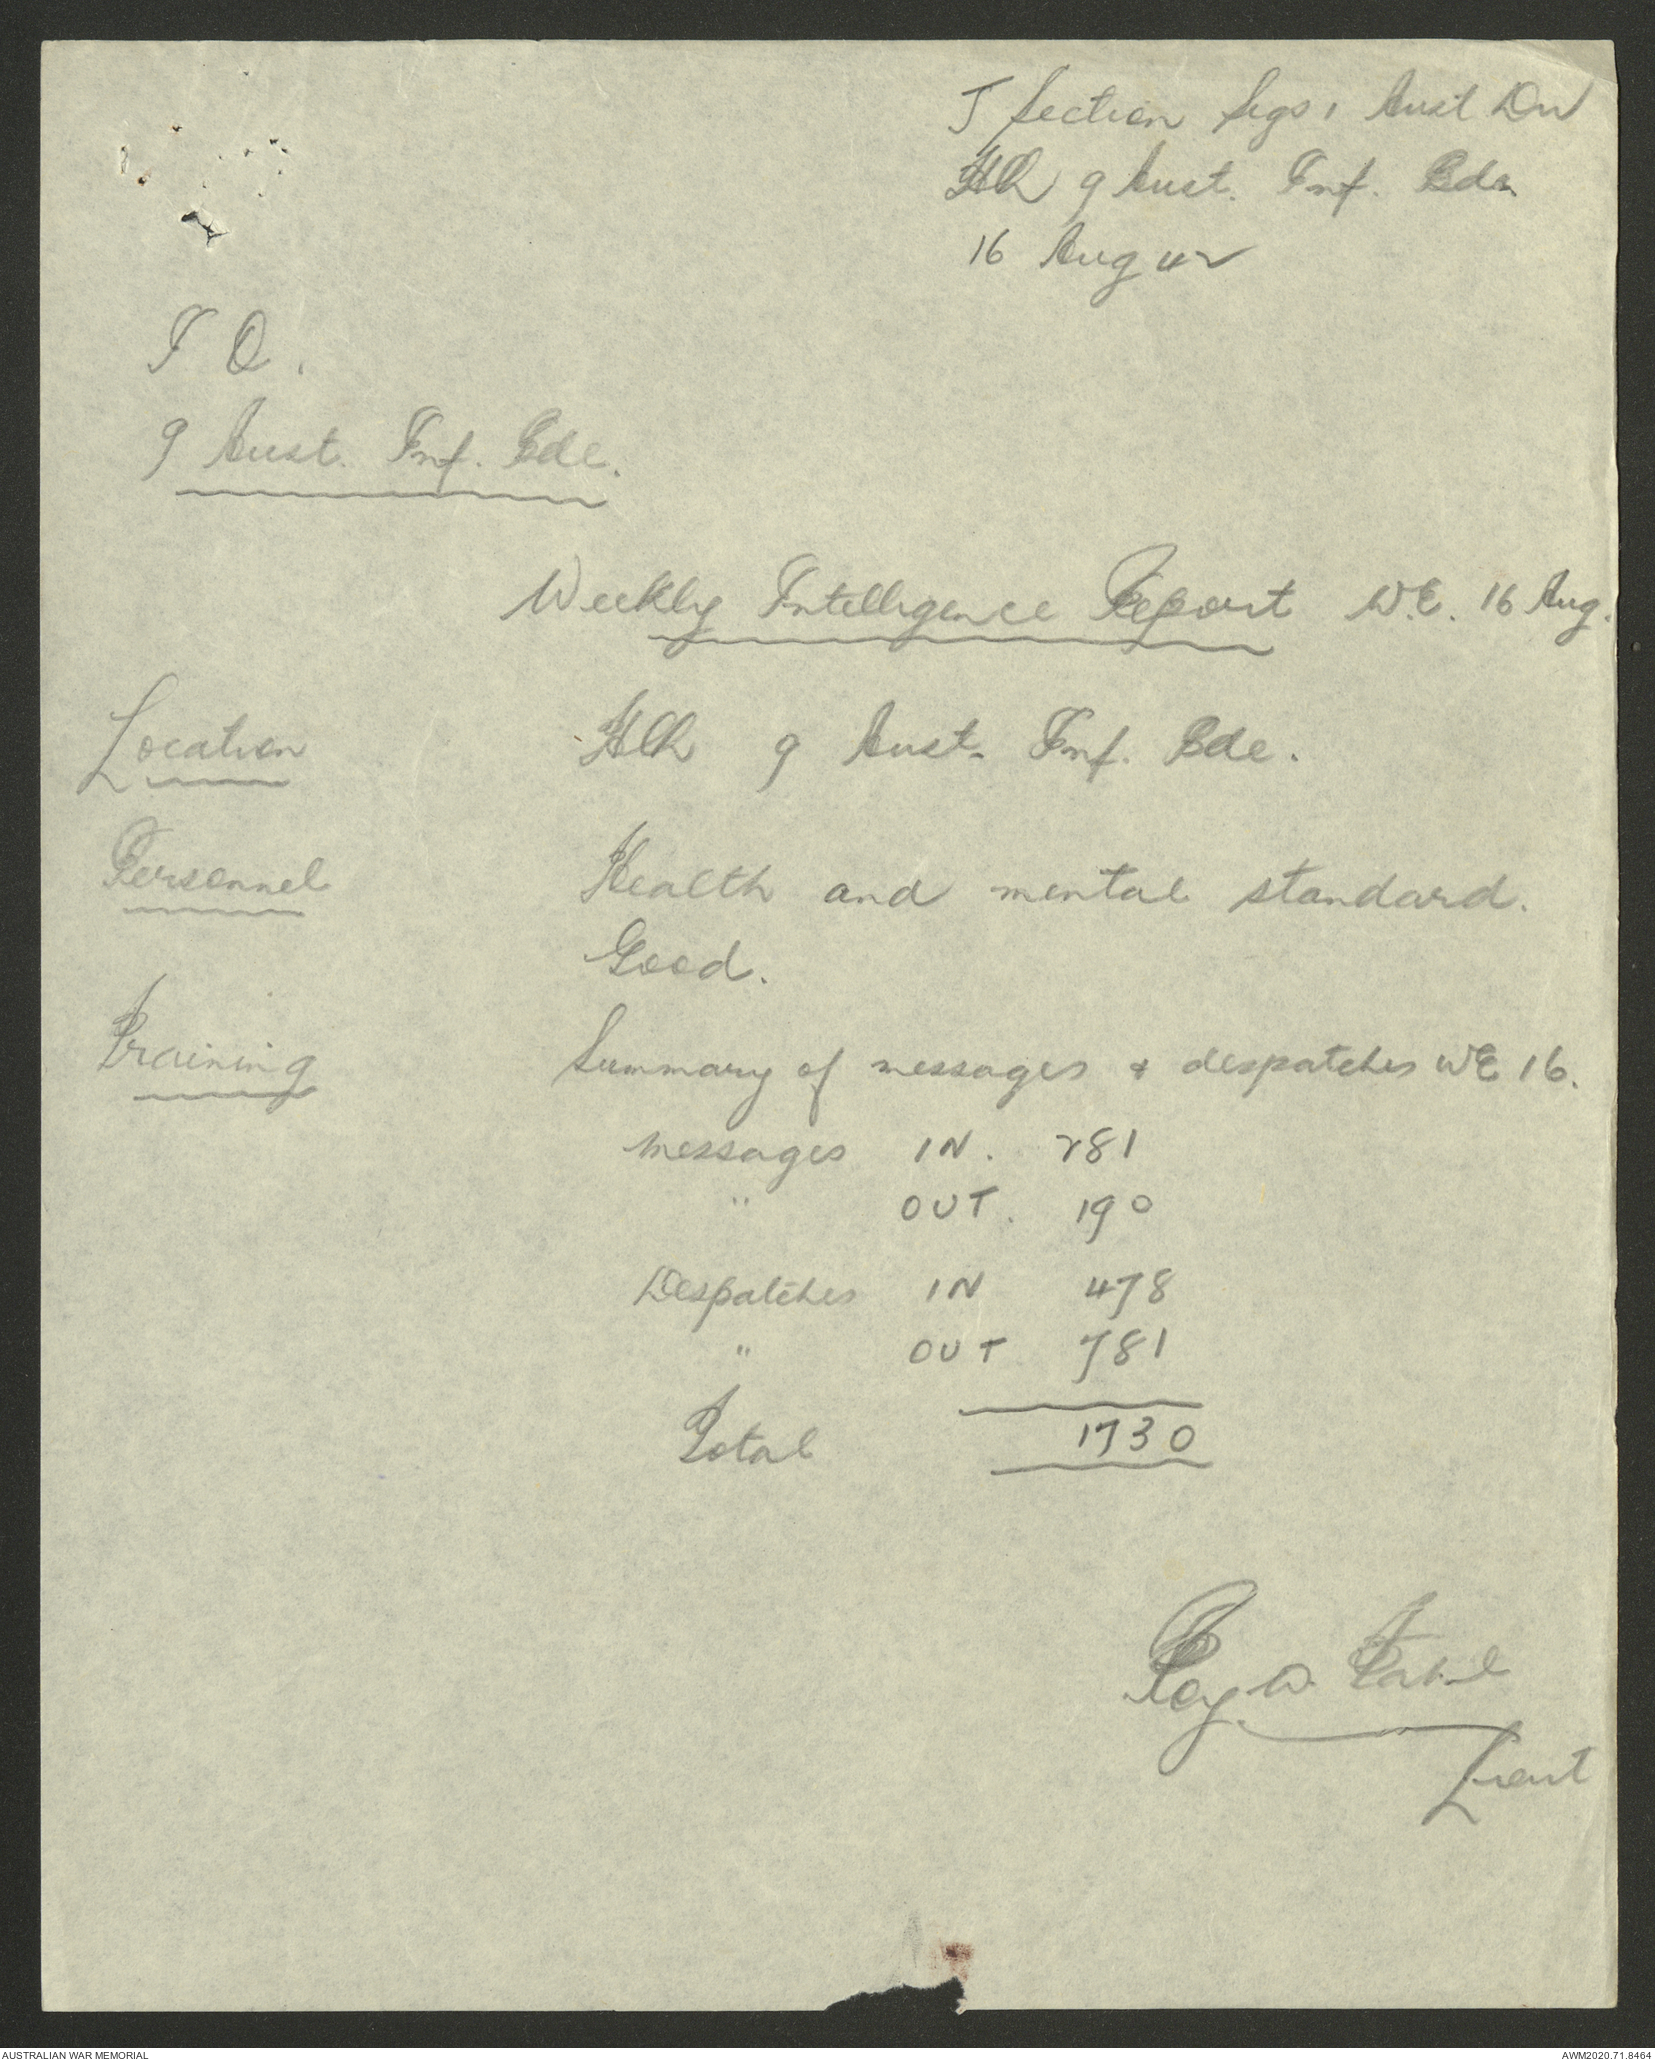 J Section Sigs 1 Aust Div
HQ 9 Aust. Inf. Bde
16 Aug 42
I O.
9 Aust. Inf. Bde.
Weekly Intelligence Report W.E. 16 Aug.
Location HQ 9 Aust. Inf. Bde.
Personnel Health and mental standard.
Good.
Training Summary of messages & despatches WE 16.
Messages IN. 281
" OUT. 190
Despatches IN 478
" OUT 781
Total 1730
Roy W.
Lieut
AUSTRALIAN WAR MEMORIAL
AWM2020.71.8464